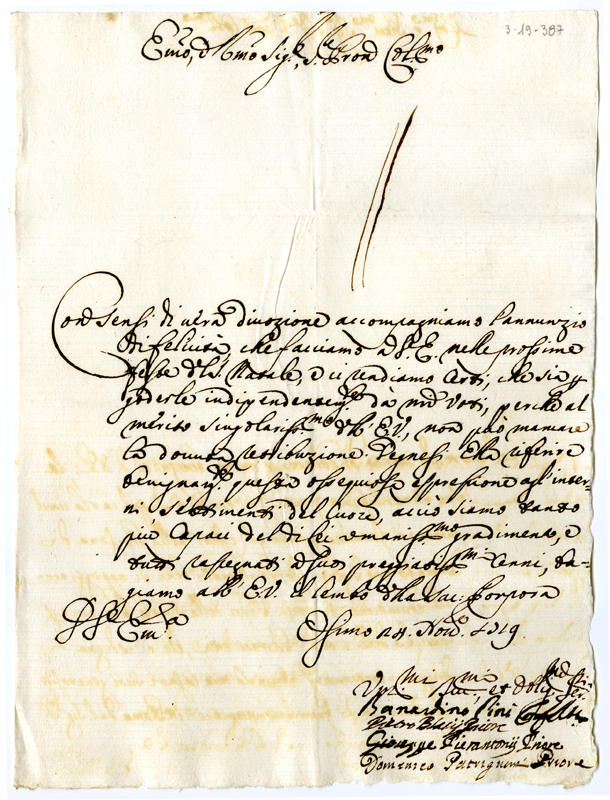 3-19-387
Em̃o, e Rmo Sig.r, Sig. Pron̄e Col.mo
Con sensi di vera divozione accompagniamo l'annunzio
di felicità, che facciamo a V.E. nelle prossime
feste del S. Natale, e ci rendiamo certi, che sia p
goderle indipendentem.te da nrī Voti, perche al
merito singolariss.mo dell' E.V., non può mancare
la dovuta retribuzione. Degnesi Ella riferire
benignam.te questa ossequiosa espressione agl'inter-
ni sentimenti del Cuore, acciò siamo tanto
più capaci del di Lei umaniss.mo gradimento, e
tutti rassegnati a suoi pregiatiss.mi Cenni, ba-
giamo all' E.V. il lembo della Sac: Porpora
Di V. Em.za
Osimo 24. Nov.e 1719.
Um.mi Dev.mi et Obblig.mi Ser.ri
Bernardino Pini Confal.re
Pietro Blasij Priore
Giuseppe Pierantonij Priore
Domenico Patrignani Priore